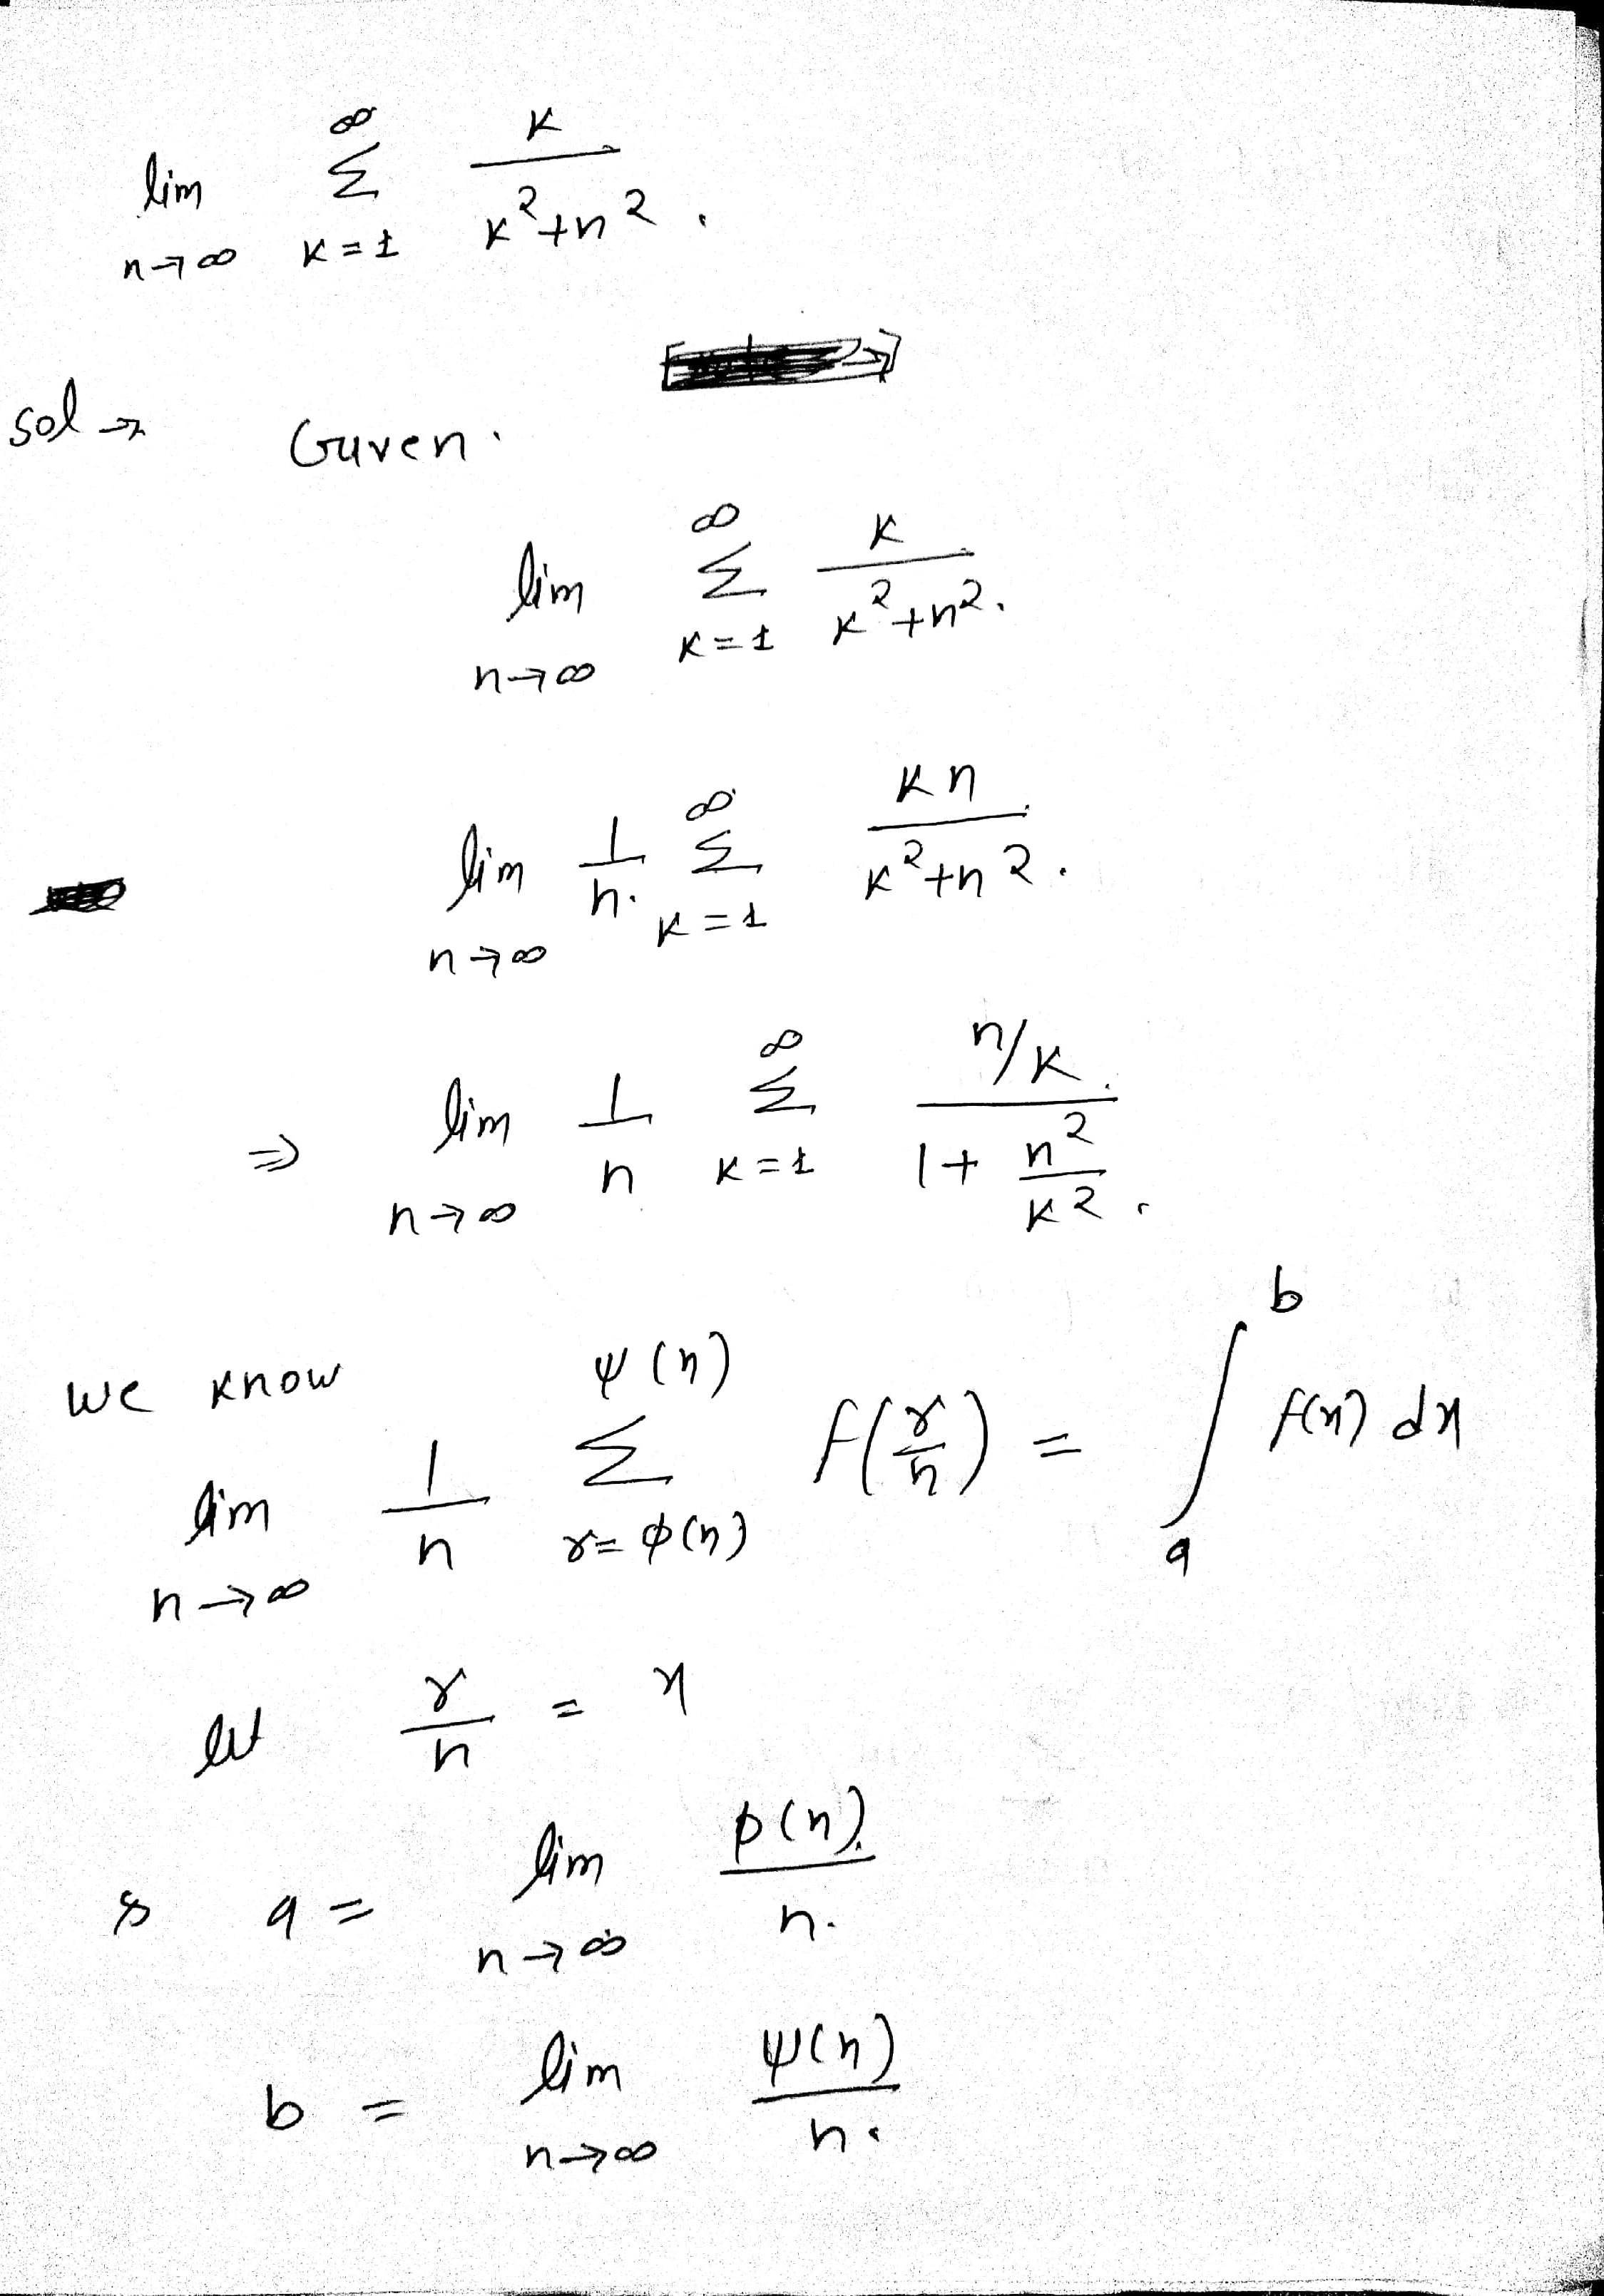 lim n→∞ ∞ Σ K=1 K / K²+n².
sol → Given.
lim n→∞ ∞ Σ K=1 K / K²+n².
lim n→∞ 1/n. ∞ Σ K=1 Kn / K²+n².
⇒ lim n→∞ 1/n ∞ Σ K=1 n/K / 1+ n²/K².
we know
lim n→∞ 1/n ψ(n) Σ r=φ(n) f(r/n) = ∫ a b f(x) dx
let r/n = x
a = lim n→∞ φ(n)/n.
b = lim n→∞ ψ(n)/n.